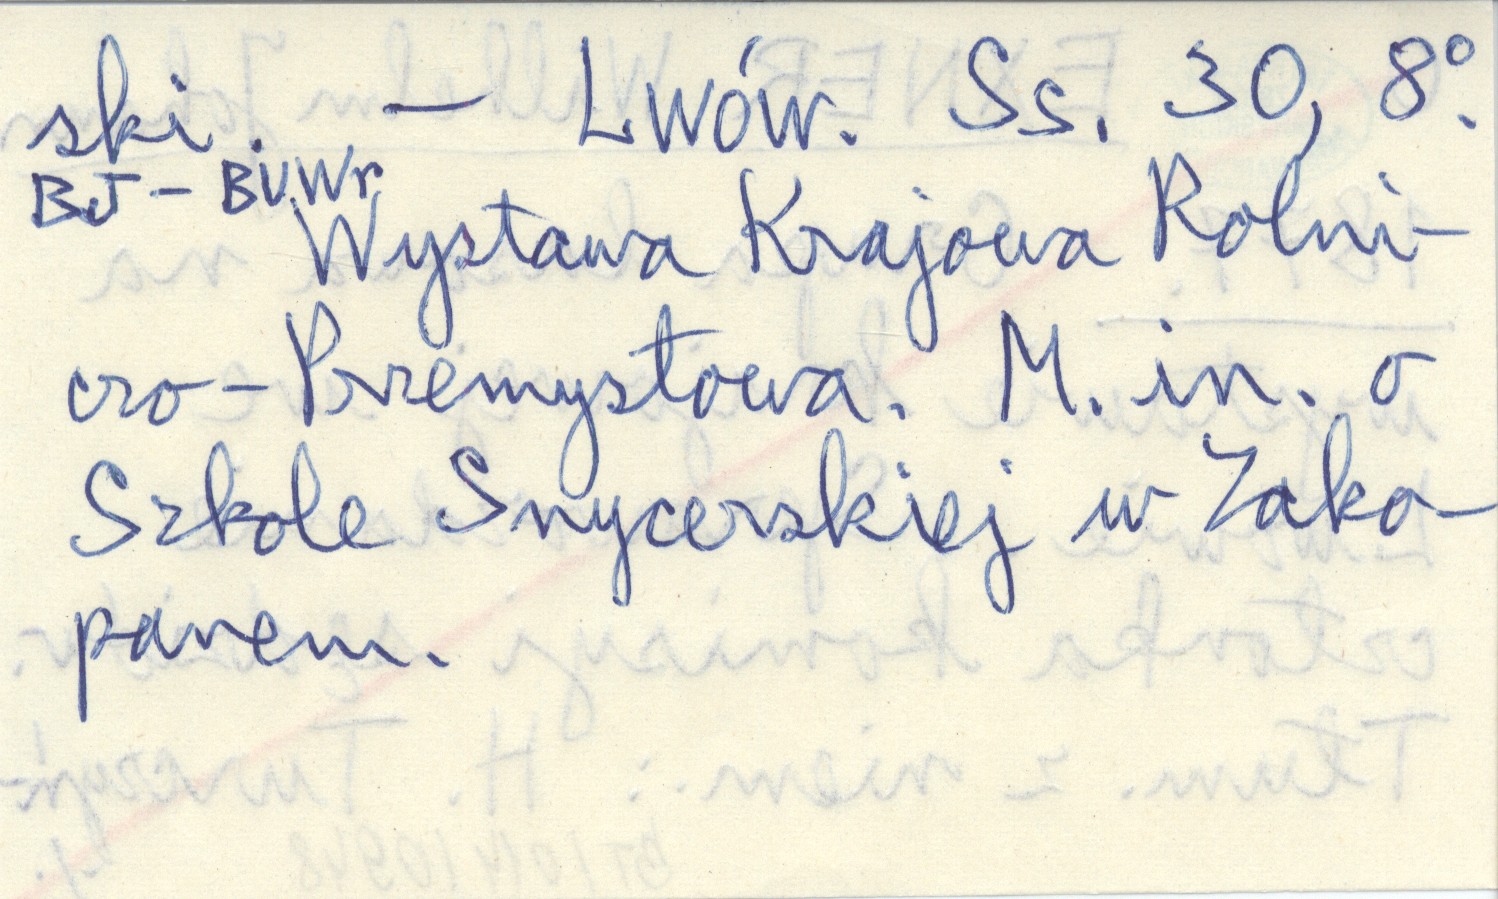 ski. — Lwów. Ss. 30, 8°.
BJ - BUWr
Wystawa Krajowa Rolni-
czo-Przemysłowa. M. in. o
Szkole Snycerskiej w Zako-
panem.